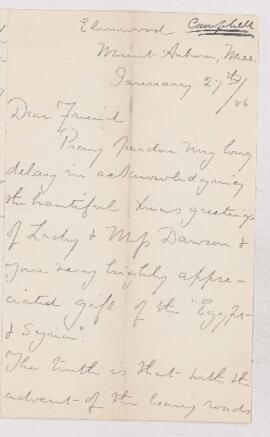 Campbell
Elmwood
Mount Auburn, Mass.
January 27th/86
Dear Friend
Pray pardon my long
delay in acknowledging
the beautiful Xmas greetings
of Lady & Miss Dawson &
your very highly appre-
ciated gift of the "Egypt
& Syria".
The truth is that with the
advent of the heavy roads